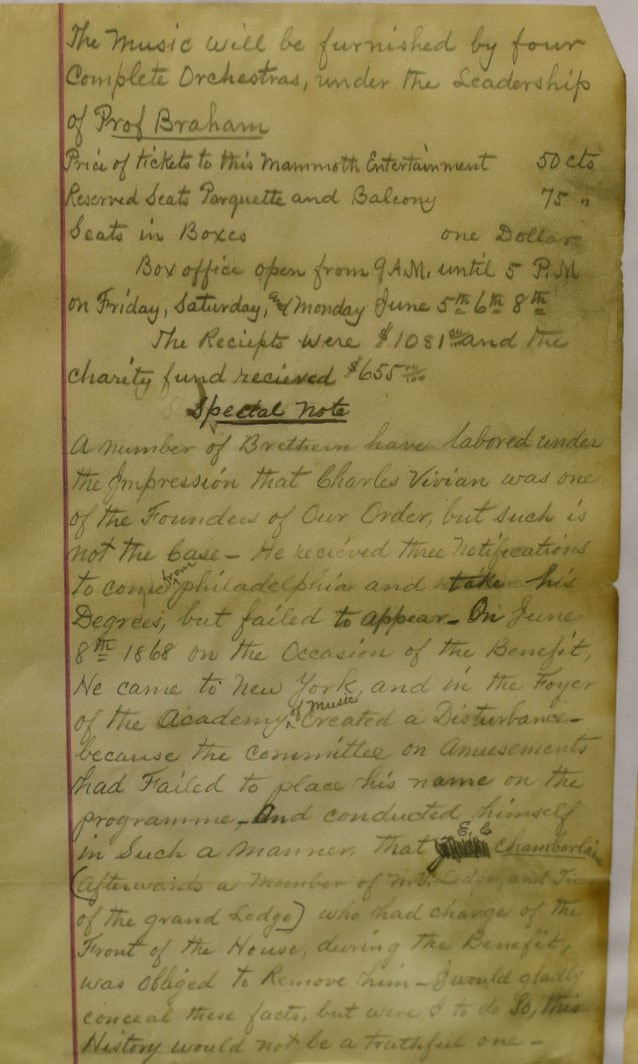 The Music will be furnished by four
Complete Orchestras, under the Leadership
of Prof Braham
Price of tickets to this Mammoth Entertainment 50 cts
Reserved Seats Parquette and Balcony 75 "
Seats in Boxes one Dollar
Box office open from 9 A.M. until 5 P.M
on Friday, Saturday, and Monday June 5th 6th 8th
The Reciepts were $1081 and the
charity fund recieved $655
Special Note
A number of Brethern have labored under
the Impression that Charles Vivian was one
of the Founders of Our Order, but such is
not the Case - He recieved three Notifications
to come from philadelphia and take his
Degrees, but failed to appear - On June
8th 1868 on the Occasion of the Benefit,
He came to New York, and in the Foyer
of the Academy of Music Created a Disturbance -
because the Committee on Amusements
had Failed to place his name on the
programme - And conducted himself
in Such a Manner, that E. C Chamberlain
(Afterwards a Member of N.Y. Lodge, and
of the grand Lodge) who had charge of the
Front of the House, during the Benefit,
was obliged to Remove him - I would gladly
conceal these facts, but were I to do So, this
History would not be a truthful one -